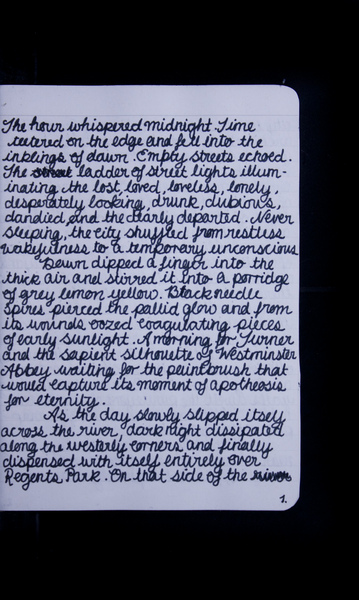 The hour whispered midnight. Time
teetered on the edge and fell into the
inklings of dawn. Empty streets echoed.
The ladder of street lights illum-
inating the lost, loved, loveless, lonely,
desperately looking, drunk, dubious,
dandied and the dearly departed. Never
sleeping, the city shuffled from restless
wakefulness to a temporary unconscious
Dawn dipped a finger into the
thick air and stirred it into a porridge
of grey lemon yellow. Black needle
spires pierced the pallid glow and from
its wounds oozed coagulating pieces
of early sunlight. A morning for Turner
and the sapient silhouette of Westminster
Abbey waiting for the paintbrush that
would capture its moment of apotheosis
for eternity.
As the day slowly slipped itself
across the river, dark night dissipated
along the westerly corners and finally
dispensed with itself entirely over
Regents Park. On that side of the river
1.